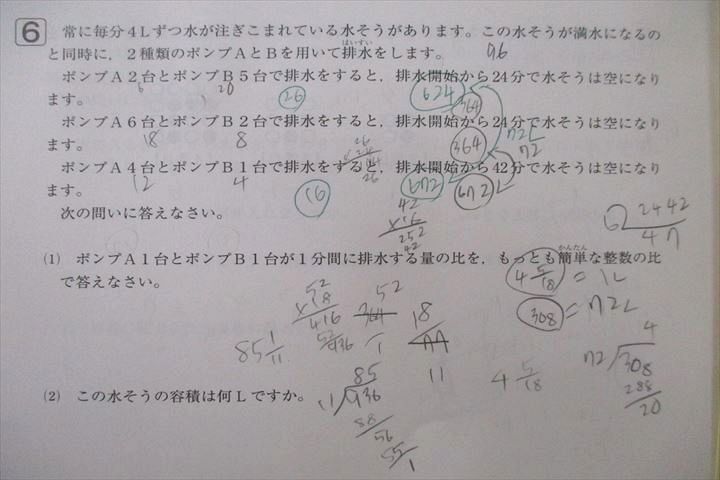 6 常に毎分4Lずつ水が注ぎこまれている水そうがあります。この水そうが満水になるの
と同時に，2種類のポンプAとBを用いて排水をします。
はいすい
ポンプA2台とポンプB5台で排水をすると，排水開始から24分で水そうは空になり
ます。
26
624
364
ポンプA6台とポンプB2台で排水をすると，排水開始から24分で水そうは空になり
ます。
18 8
364
ポンプA4台とポンプB1台で排水をすると，排水開始から42分で水そうは空になり
ます。
12 4
16
672
672
次の問いに答えなさい。
42
252
42
(1) ポンプA1台とポンプB1台が1分間に排水する量の比を，もっとも簡単な整数の比
かんたん
で答えなさい。
4 5/18 = 1L
308 = 72L
52
416
52
936
18
11
85 1/11
4 5/18
4
72 308
288
20
(2) この水そうの容積は何Lですか。
85
11 936
88
56
55
1